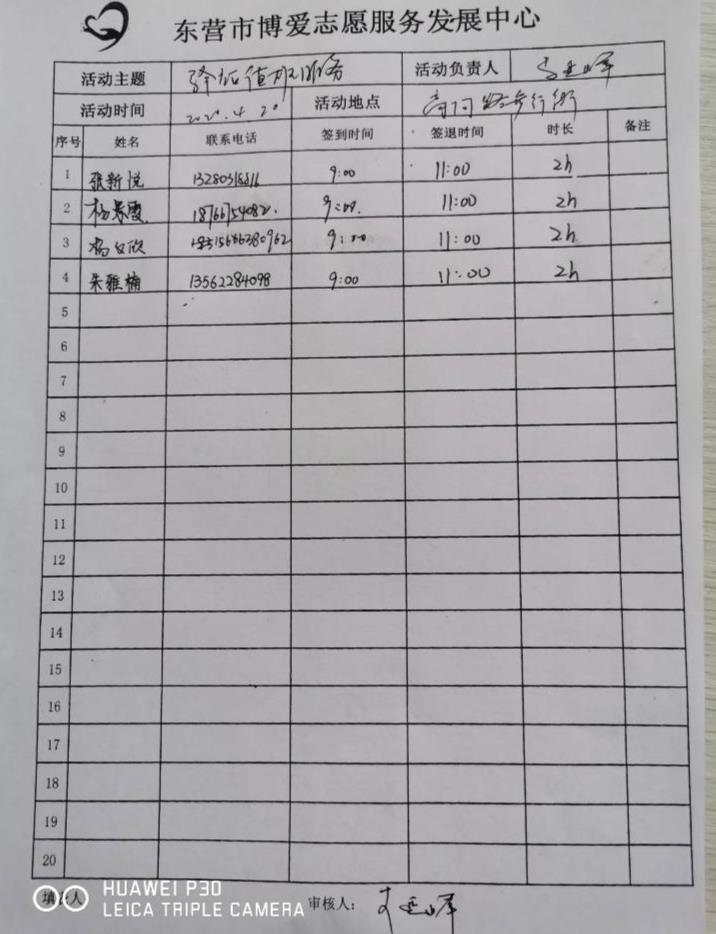 东营市博爱志愿服务发展中心
活动主题 值班服务 活动负责人
活动时间 2020.4.20 活动地点 步行街
序号 姓名 联系电话 签到时间 签退时间 时长 备注
1 张新悦 9:00 11:00 2h
2 杨景霞 18766754082. 9:00. 11:00 2h
3 9:00 11:00 2h
4 朱雅楠 13562284098 9:00 11:00 2h
5
6
7
8
9
10
11
12
13
14
15
16
17
18
19
20
填表人 审核人:
HUAWEI P30
LEICA TRIPLE CAMERA